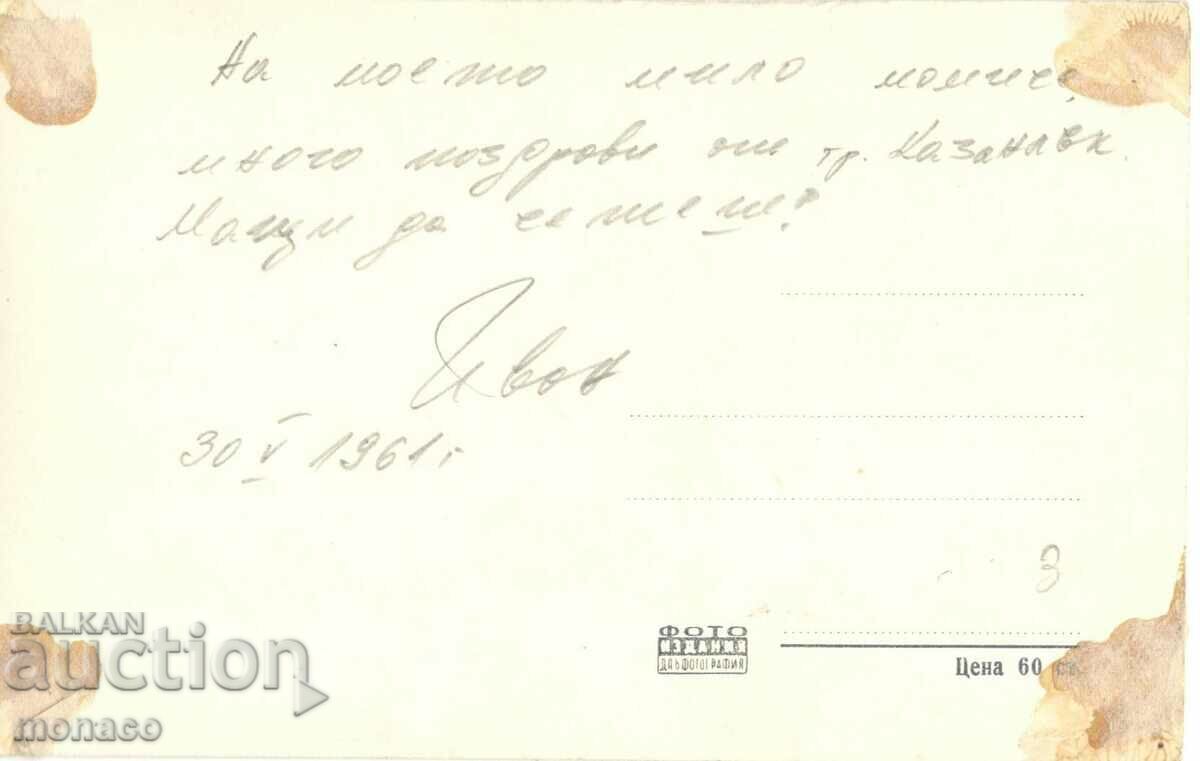 На моето мило момиче,
много поздрави от гр. Казанлък.
да се
Иван
30 V 1961 г.
3
ФОТО
ИЗДАНИЕ
ДП БЪЛ ФОТОГРАФИЯ
Цена 60 ст.
BALKAN
auction
monaco